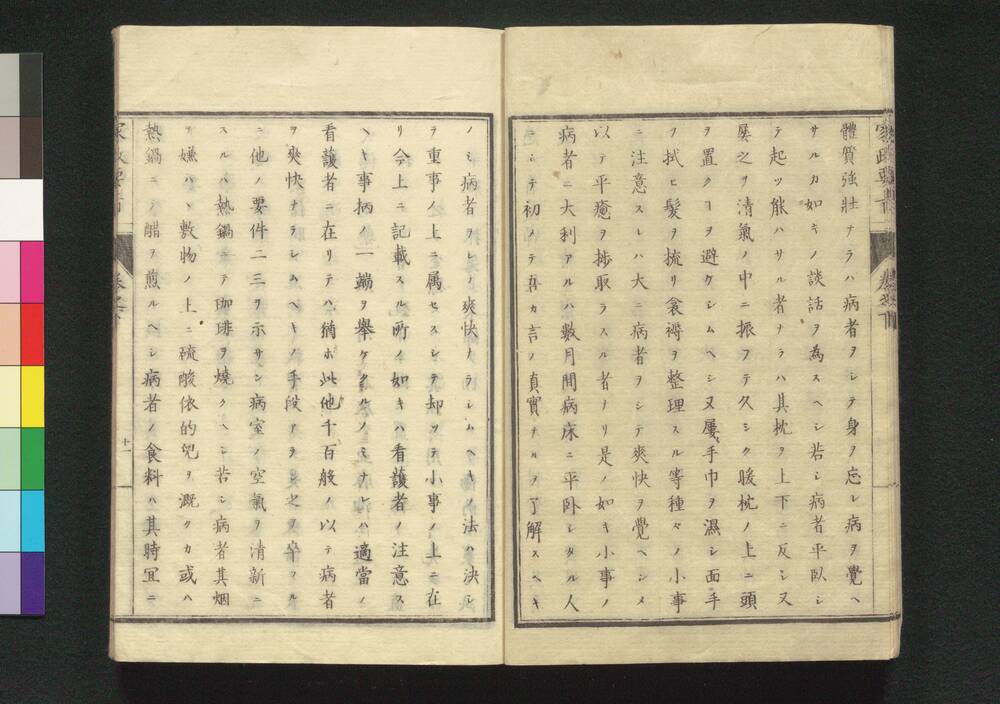 體質強壯ナラハ病者ヲシテ身ヲ忘レ病ヲ覺ヘ
サルカ如キノ談話ヲ為スヘシ若シ病者平臥シ
テ起ツ能ハサル者ナラハ其枕ヲ上下ニ反シ又
屡之ヲ清氣ノ中ニ振フテ久シク暖枕ノ上ニ頭
ヲ置クヿヲ避ケシムヘシ又屢手巾ヲ濕シ面手
ヲ拭ヒ髮ヲ梳リ衾褥ヲ整理スル等種々ノ小事
ニ注意スレハ大ニ病者ヲシテ爽快ヲ覺ヘシメ
以テ平癒ヲ捗取ラスル者ナリ是ノ如キ小事ノ
病者ニ大利アルハ數月間病床ニ平卧シタル人
ニシテ初メテ吾カ言ノ真實ナルヲ了解スヘキ
ノミ病者ヲシテ爽快ナラシムヘキノ法ハ決シ
テ重事ノ上ニ属セスシテ却ツテ小事ノ上ニ在
リ今上ニ記載スル所ノ如キハ看護者ノ注意ス
ヘキ事柄ノ一端ヲ擧ケタルノミナレハ適當ノ
看護者ニ在リテハ猶ホ此他千百般ノ以テ病者
ヲ爽快ナラシムヘキノ手段アラン之ヲ卒フル
ニ他ノ要件二三ヲ示サン病室ノ空氣ヲ清新ニ
スルハ熱鍋ニテ珈琲ヲ燒クヘシ若シ病者其烟
ヲ嫌ハヽ敷物ノ上ニ硫酸依的兒ヲ溉クカ或ハ
熱鍋ニテ醋ヲ煎ルヘシ病者ノ食料ハ其時冝ニ
十一